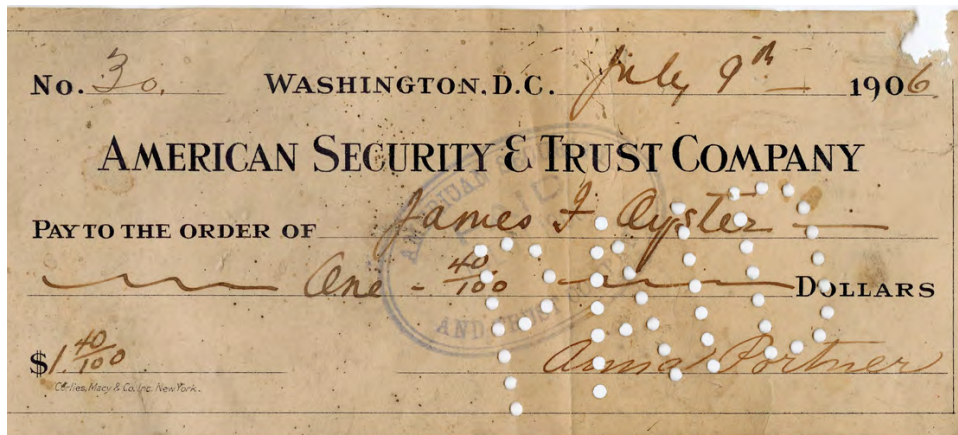 No. 30. WASHINGTON, D.C. July 9th 1906
AMERICAN SECURITY & TRUST COMPANY
PAY TO THE ORDER OF James F Oyster
One - 40/100 DOLLARS
$1.40/100 Anna Portner
Corlies, Macy & Co. Inc. New York.
PAID
AND TRUST